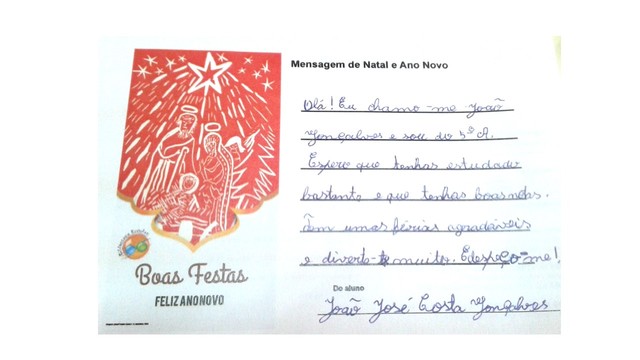 Mensagem de Natal e Ano Novo
Olá! Eu chamo-me João
Gonçalves e sou do 5º A.
Espero que tenhas estudado
bastante e que tenhas boas notas.
Tem umas férias agradáveis
e diverte-te muito. E despeço-me!
Do aluno
João José Costa Gonçalves
Boas Festas
FELIZ ANO NOVO